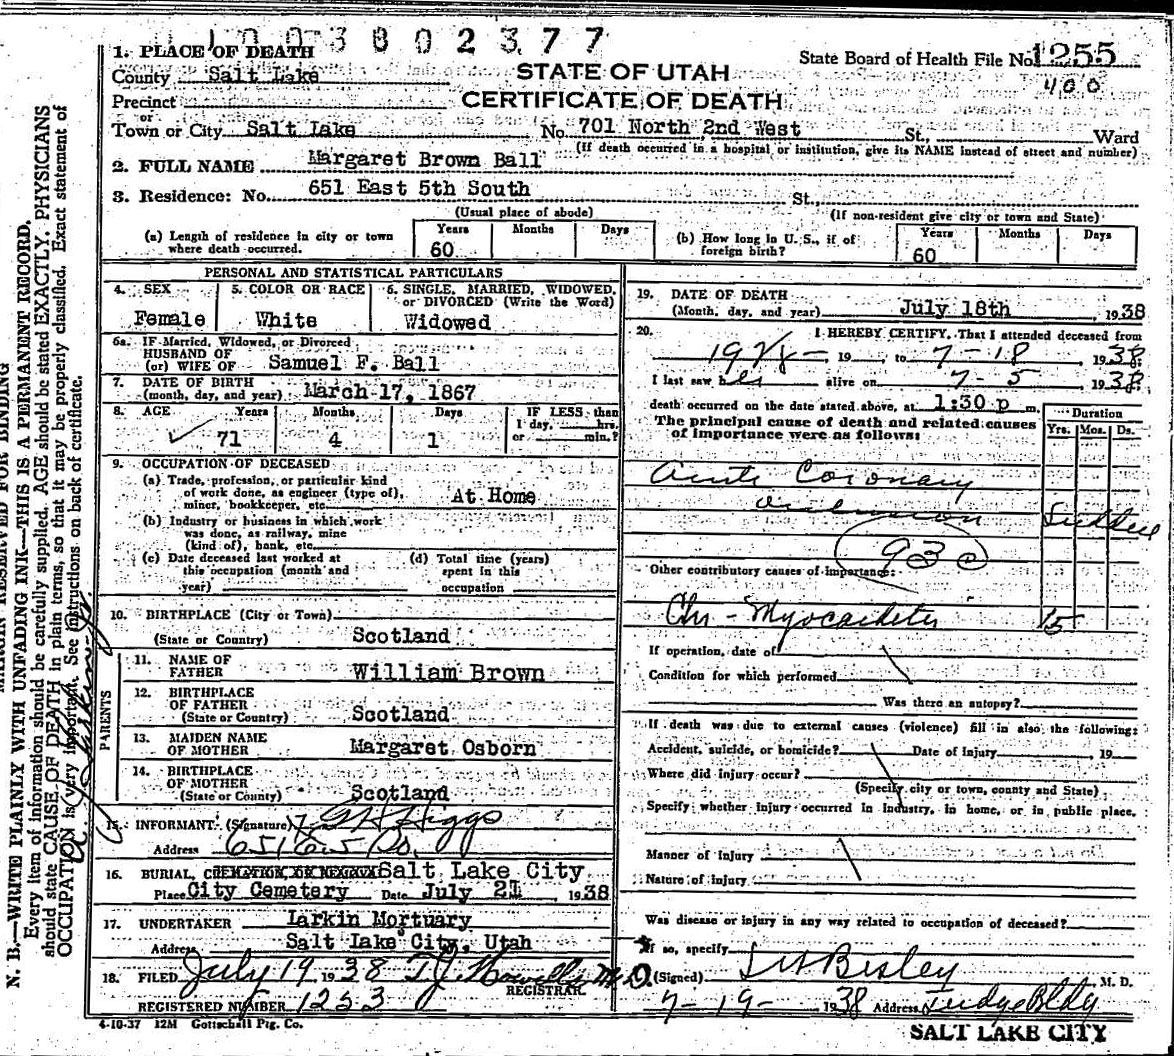 0100380 2377
1. PLACE OF DEATH
County Salt Lake
STATE OF UTAH
State Board of Health File No. 1255
400
Precinct
CERTIFICATE OF DEATH
or
Town or City Salt Lake No. 701 North 2nd West St., Ward
(If death occurred in a hospital or institution, give its NAME instead of street and number)
2. FULL NAME Margaret Brown Ball
3. Residence: No. 651 East 5th South St.,
(Usual place of abode) (If non-resident give city or town and State)
(a) Length of residence in city or town where death occurred. Years 60 Months Days
(b) How long in U. S., if of foreign birth? Years 60 Months Days
PERSONAL AND STATISTICAL PARTICULARS
4. SEX Female
5. COLOR OR RACE White
6. SINGLE, MARRIED, WIDOWED, or DIVORCED (Write the Word) Widowed
6a. IF Married, Widowed, or Divorced
HUSBAND OF
(or) WIFE OF Samuel F. Ball
7. DATE OF BIRTH
(month, day, and year) March 17, 1867
8. AGE Years 71 Months 4 Days 1
IF LESS than
1 day, hrs.
or min.?
9. OCCUPATION OF DECEASED
(a) Trade, profession, or particular kind
of work done, as engineer (type of),
miner, bookkeeper, etc. At Home
(b) Industry or business in which work
was done, as railway, mine
(kind of), bank, etc.
(c) Date deceased last worked at
this occupation (month and
year)
(d) Total time (years)
spent in this
occupation
10. BIRTHPLACE (City or Town)
(State or Country) Scotland
PARENTS
11. NAME OF
FATHER William Brown
12. BIRTHPLACE
OF FATHER
(State or Country) Scotland
13. MAIDEN NAME
OF MOTHER Margaret Osborn
14. BIRTHPLACE
OF MOTHER
(State or Country) Scotland
15. INFORMANT (Signature) G H Higgs
Address 651 E 5 So.
16. BURIAL, CREMATION, OR REMOVAL Salt Lake City
Place City Cemetery Date July 21 1938
17. UNDERTAKER Larkin Mortuary
Address Salt Lake City, Utah
18. FILED July 19 1938 T J Howells M.D.
REGISTRAR.
REGISTERED NUMBER 1253
4-10-37 12M Gottschall Ptg. Co.
19. DATE OF DEATH
(Month, day, and year) July 18th, 1938
20. I HEREBY CERTIFY, That I attended deceased from
19, to 7-18, 1938.
I last saw her alive on 7-5, 1938.
death occurred on the date stated above, at 1:30 p m.
The principal cause of death and related causes
of importance were as follows:
Duration
Yrs. Mos. Ds.
Acute Coronary
occlusion Sudden
Other contributory causes of importance:
Chr - Myocarditis 15
If operation, date of
Condition for which performed
Was there an autopsy?
If death was due to external causes (violence) fill in also the following:
Accident, suicide, or homicide? Date of injury 19
Where did injury occur?
(Specify city or town, county and State)
Specify whether injury occurred in industry, in home, or in public place.
Manner of injury
Nature of injury
Was disease or injury in any way related to occupation of deceased?
If so, specify
(Signed) M. D.
7-19- 1938 Address Judge Bldg
SALT LAKE CITY
MARGIN RESERVED FOR BINDING
N. B.—WRITE PLAINLY WITH UNFADING INK—THIS IS A PERMANENT RECORD.
Every item of information should be carefully supplied. AGE should be stated EXACTLY. PHYSICIANS
should state CAUSE OF DEATH in plain terms, so that it may be properly classified. Exact statement of
OCCUPATION is very important. See instructions on back of certificate.